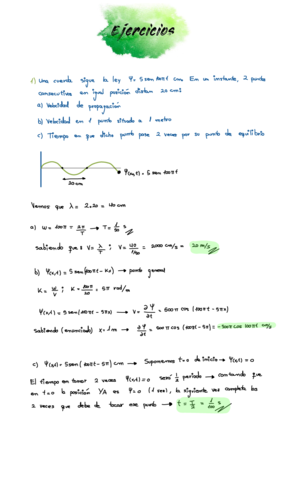 Ejercicios
1) Una cuerda sigue la ley Ψ = 5 sen 100πt cm. En un instante, 2 puntos
consecutivos en igual posición distan 20 cm:
a) Velocidad de propagación
b) Velocidad en 1 punto situado a 1 metro
c) Tiempo en que dicho punto pase 2 veces por su punto de equilibrio
Ψ(x,t) = 5 sen 100πt
20 cm
Vemos que λ = 2·20 = 40 cm
a) ω = 100π = 2π/T → T = 1/50 s
sabiendo que: v = λ/T ; v = 40/1/50 = 2000 cm/s = 20 m/s
b) Ψ(x,t) = 5 sen (100πt - Kx) → punto general
K = ω/v ; K = 100π/20 = 5π rad/m
Ψ(x,t) = 5 sen (100πt - 5πx) → v = ∂Ψ/∂t = 500π cos (100πt - 5πx)
sabiendo (enunciado) x = 1m → ∂Ψ/∂t = 500π cos (100πt - 5π) = -500π cos 100πt cm/s
c) Ψ(x,t) = 5 sen (100πt - 5π) cm → Suponemos t=0 de inicio → Ψ(x,t) = 0
El tiempo en tener 2 veces Ψ(x,t) = 0 será 1/2 periodo → contando que
en t=0 la posición YA es Ψ=0 (1 vez), la siguiente vez completa las
2 veces que debe de tocar ese punto → t = T/2 = 1/100 s